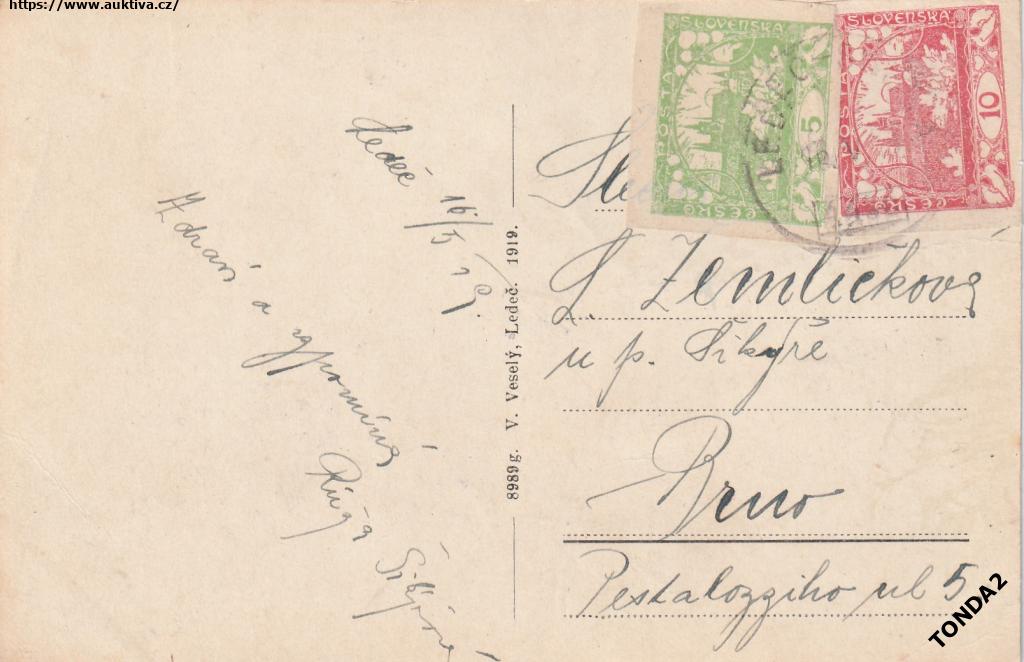 https://www.auktiva.cz/
Ledeč 16/5 19.
Zdraví a vzpomíná
Růža
8989g. V. Veselý, Ledeč. 1919.
POŠTA
SLOVENSKÁ
ČESKO
5
POŠTA
SLOVENSKÁ
ČESKO
10
LEDEČ
L. Zemličková
u p. Sikýře
Brno
Pestalozziho ul 5
TONDA2